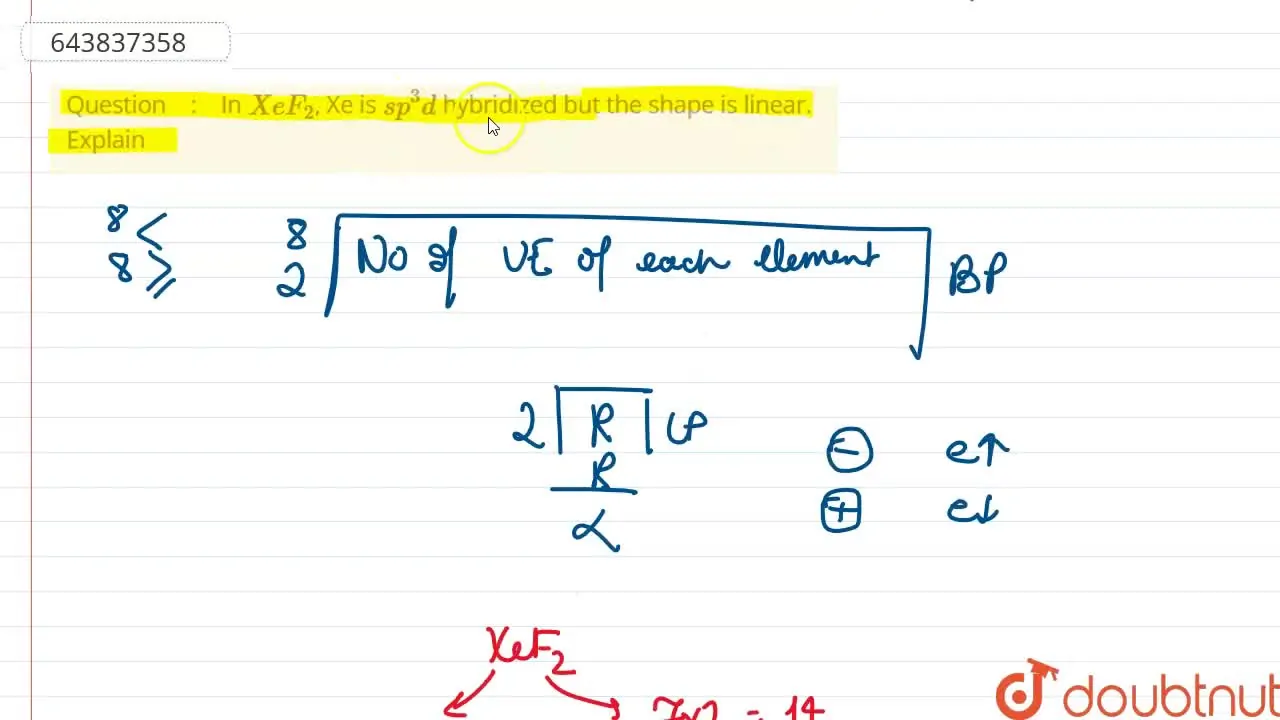 643837358
Question : In XeF₂, Xe is sp³d hybridized but the shape is linear.
Explain
8 <
8 ≥
8
2
No of VE of each element
BP
2 R LP
R
α
⊖ e↑
⊕ e↓
XeF₂
7x2 = 14
doubtnut